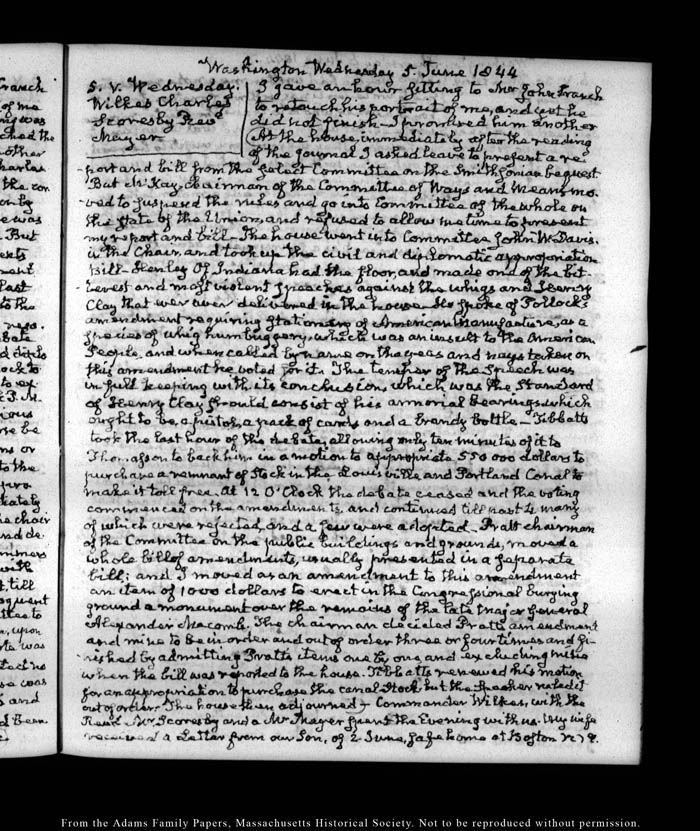 Washington Wednesday 5. June 1844
5. V. Wednesday.
Wilkes Charles
Scoresby Revd
Mayer
I gave an hour sitting to Mr John Cranch
to retouch his portrait of me, and yet he
did not finish. I promised him another
At the house, immediately after the reading
of the Journal I asked leave to present a re-
port and bill from the select Committee on the Smithsonian bequest
But McKay, chairman of the Committee of Ways and Means mo-
ved to suspend the rules and go into Committee of the whole on
the state of the Union, and refused to allow me time to present
my report and bill. The house went into Committee John W. Davis.
in the Chair, and took up the civil and diplomatic appropriation
Bill. Henley Of Indiana had the floor, and made one of the bit-
terest and most violent speeches against the whigs and Henry
Clay that was ever delivered in the house. He spoke of Pollock's
amendment requiring Stationery of American Manufacture, as a
species of whig humbuggery, which was an insult to the American
People, and when called by name on the yeas and nays taken on
this amendment he voted for it. The temper of the Speech was
in full keeping with its conclusion, which was the Standard
of Henry Clay should consist of his armorial bearings which
ought to be, a pistol, a pack of cards and a brandy bottle — Tibbatts
took the last hour of the debate, allowing only ten minutes of it to
Thomasson to back him in a motion to appropriate 550 000 dollars to
purchase a remnant of Stock in the Louisville and Portland Canal to
make it toll free. At 12 O'Clock the debate ceased and the voting
commenced on the amendments, and continued till past 4 many
of which were rejected, and a few were adopted. Pratt chairman
of the Committee on the public buildings and grounds, moved a
whole bill of amendments, usually presented in a separate
bill; and I moved as an amendment to this amendment
an item of 1000 dollars to erect in the Congressional burying
ground a monument over the remains of the late Major General
Alexander Macomb. The chairman decided Pratt's amendment
and mine to be in order and out of order three or four times and fi-
nished by admitting Pratt's items one by one, and excluding mine
when the bill was reported to the house. Tibbatts renewed his motion
for an appropriation to purchase the canal Stock but the Speaker ruled it
out of order. The house then adjourned — Commander Wilkes, with the
Revd Mr Scoresby and a Mr Mayer spent the Evening with us. My wife
received a Letter from our Son, of 2 June, safe home at Boston
From the Adams Family Papers, Massachusetts Historical Society. Not to be reproduced without permission.